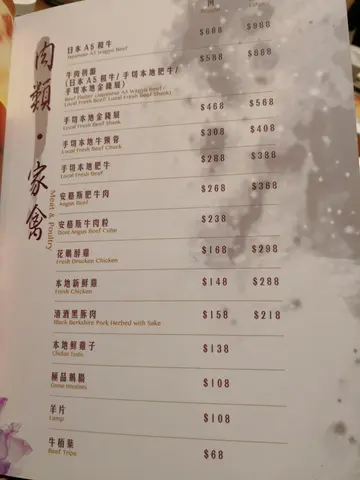 肉類・家禽
Meat & Poultry
日本 A5 和牛 $688 $988
Japanese A5 Wagyu Beef
牛肉拼盤 $588 $888
(日本 A5 和牛/手切本地肥牛/
手切本地金錢𦟌)
Beef Platter (Japanese A5 Wagyu Beef /
Local Fresh Beef/ Local Fresh Beef Shank)
手切本地金錢𦟌 $468 $568
Local Fresh Beef Shank
手切本地牛頸脊 $308 $408
Local Fresh Beef Chuck
手切本地肥牛 $288 $388
Local Fresh Beef
安格斯肥牛肉 $268 $368
Angus Beef
安格斯牛肉粒 $238
Diced Angus Beef Cube
花鵰醉雞 $168 $298
Fresh Drucken Chicken
本地新鮮雞 $148 $288
Fresh Chicken
清酒黑豚肉 $158 $218
Black Berkshire Pork Herbed with Sake
本地鮮雞子 $138
Chicken Testis
極品鵝腸 $108
Goose Intestines
羊片 $108
Lamp
牛栢葉 $68
Beef Tripe